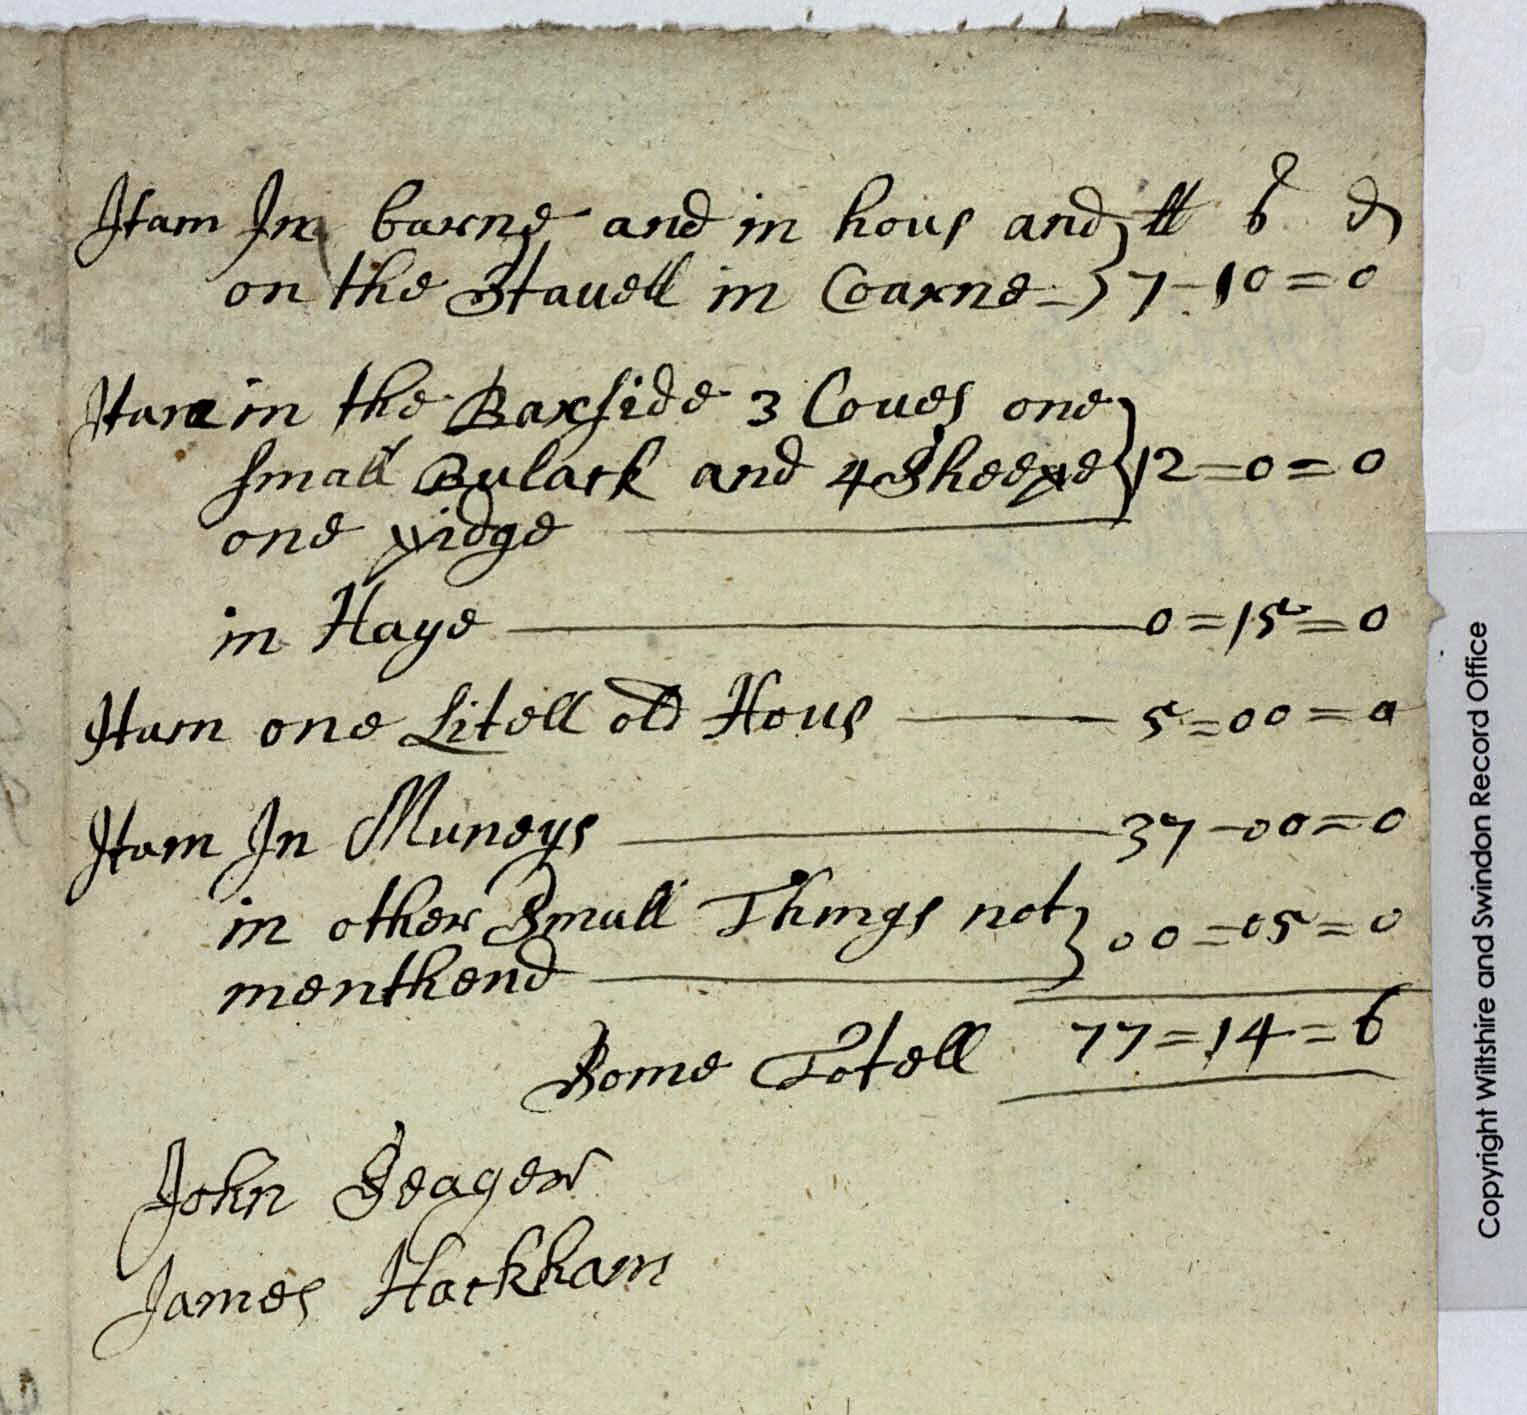 Itam In barne and in hous and } ll s d
on the Stavell in Coarne = } 7 - 10 = 0
Itam in the Barside 3 Coues one }
small Bulack and 4 Sheepe } 12 = 0 = 0
one pidge
in Haye 0 = 15 = 0
Itam one Litell old Hous 5 = 00 = 0
Itam In Muneys 37 - 00 = 0
in other Small Things not } 00 = 05 = 0
menthend
Some Totell 77 = 14 = 6
John Seager
James Hackham
Copyright Wiltshire and Swindon Record Office